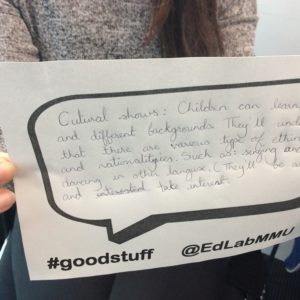 Cutural shows: Children can learn
and different backgrounds. They'll und
that there are various type of ethni
and nationalitpies. Such as: singing an
dancing in other langus. (They'll be
and intrested take interest.
#goodstuff @EdLabMMU